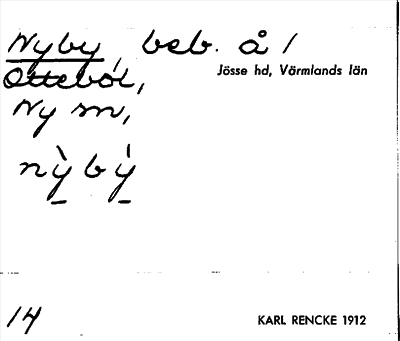 Nyby, beb. å /
Ottebol,
Jösse hd, Värmlands län
Ny sn,
nỳ bý
14
KARL RENCKE 1912